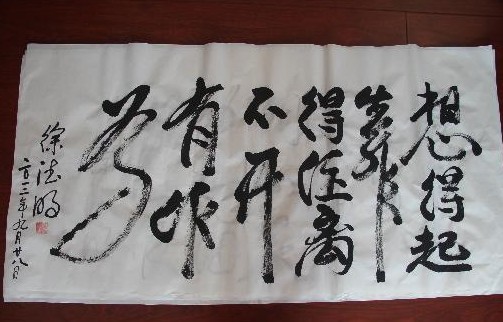 想得起
靠
得住离
不开
有作
为
徐
二〇一三年九月廿八日